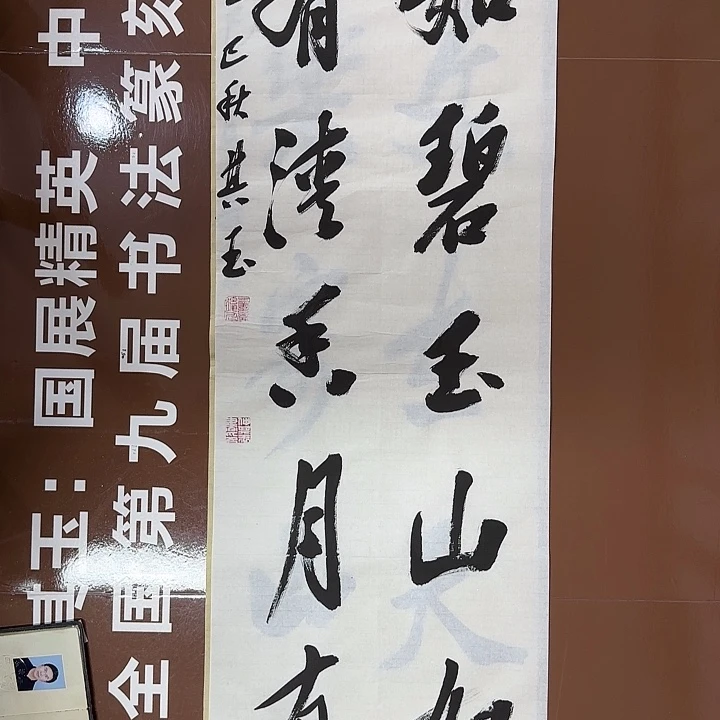 如碧玉山如
有清香月有
巳秋其玉
其玉：国展精英 中
全国第九届书法篆刻